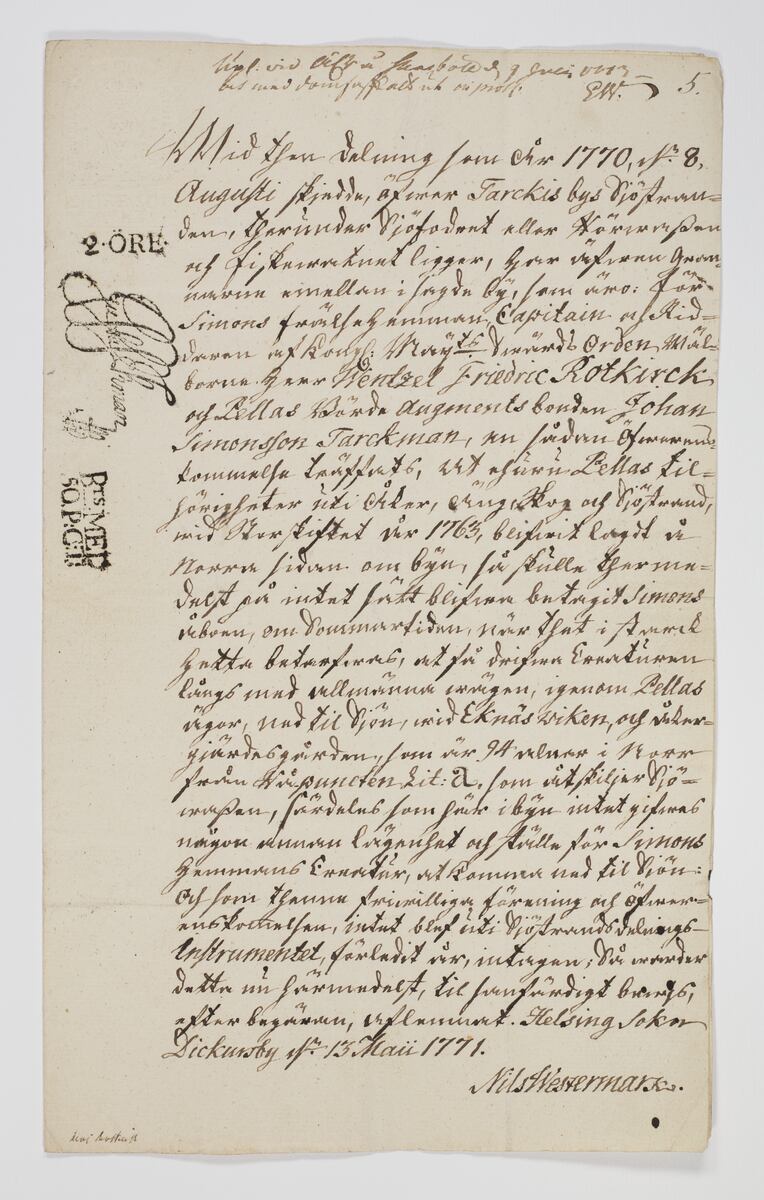 5.
EW.
Wid then delning som År 1770, d. 8,
Augusti skjedde, öfwer Tarckis bys Sjöstran=
den, therunder Sjöfodret eller Rörwassen
och fiskewatnet ligger, har äfwen Gran=
narne emellan i sagde by, som äro: för
Simons frälsehemman, Capitain och Rid=
daren af Kongl: Maÿts Swärds Orden, Wäl=
borne Herr Wentzel Friedric Rotkirck
och Pellas Börde Augments bonden Johan
Simonsson Tarckman, en sådan Öfwerens=
kommelse träffats, At ehuru Pellas til=
hörigheter uti Åker, Äng, Skog och Sjöstrand,
wid Storskiftet år 1763, blifwit lagdt å
Norra sidan om byn, så skulle therme=
delst på intet sätt blifwa betagit Simons
åboen, om Sommartiden, när thet i starck
hetta betarfwas, at få drifwa Creaturen
långs med allmänna wägen, igenom Pellas
ägor, ned til Sjön, wid Eknäs wiken, och åker=
gjärdesgården, som är 94 alnar i Norr
från Rå puncten Lit: a. som åtskiljer Sjö=
wassen, särdeles som här i byn intet gifwes
någon annan lägenhet och ställe för Simons
Hemmans Creatur, at komma ned til Sjön:
Och som thenne friwilliga förening och öfwer=
enskomelsen, intet blef uti Sjöstrandsdelnings=
Instrumentet, förledit år, intagen; Så warder
detta nu härmedelst, til sanfärdigt bewis,
efter begäran, aflemnat. Helsing Sokn
Dickursby d. 13 Maii 1771.
Nils Westermarck.
2·ÖRE·